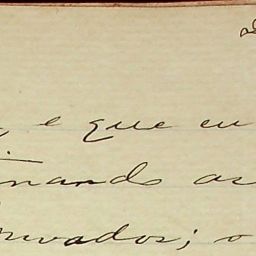 , e que eu
nando as
rvados; o